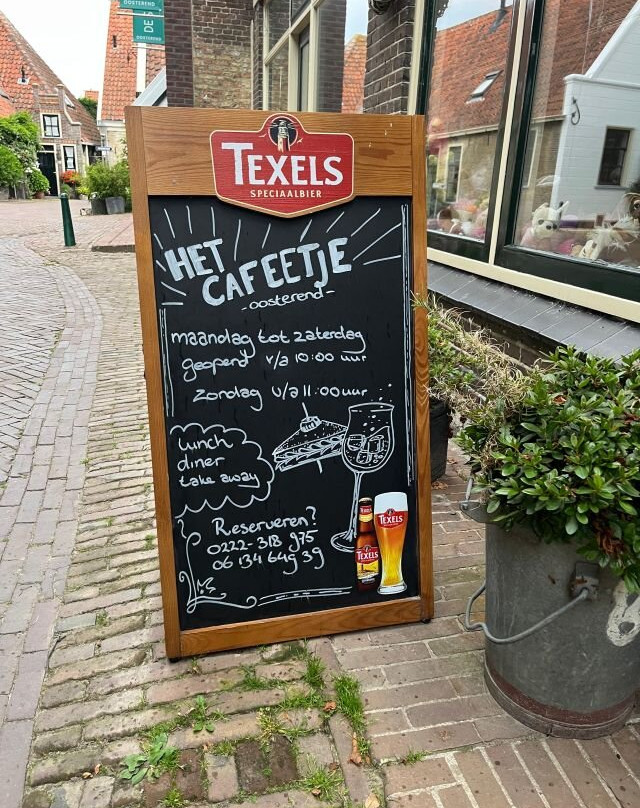 OOSTEREND
DE
OOSTEREND
TEXELS
SPECIAALBIER
HET
CAFEETJE
-oosterend-
maandag tot zaterdag
geopend v/a 10:00 uur
zondag v/a 11:00 uur
lunch
diner
take away
Reserveren?
0222-318 975
06 134 649 39
TEXELS
TEXELS